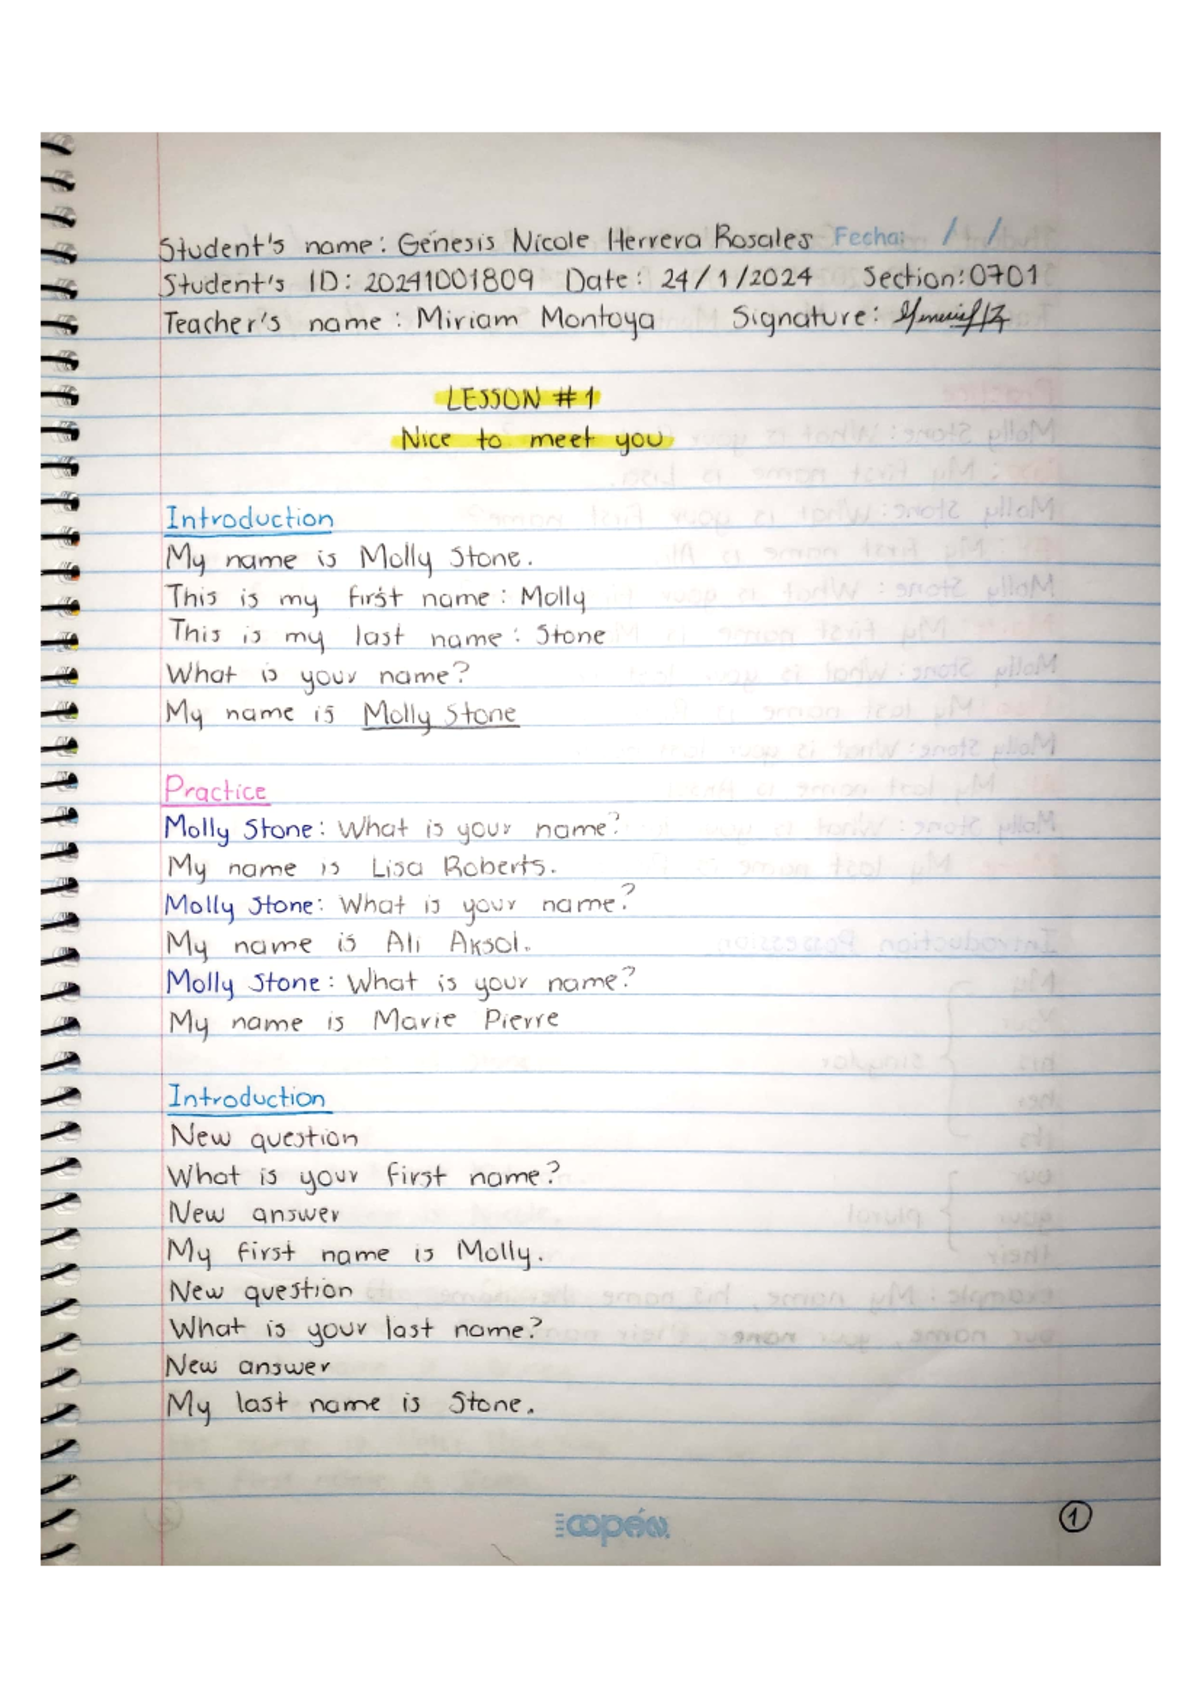 Student's name: Génesis Nicole Herrera Rosales Fecha: / /
Student's ID: 20241001809 Date: 24/1/2024 Section: 0701
Teacher's name: Miriam Montoya Signature:
LESSON #1
Nice to meet you
Introduction
My name is Molly Stone.
This is my first name: Molly
This is my last name: Stone
What is your name?
My name is Molly Stone
Practice
Molly Stone: What is your name?
My name is Lisa Roberts.
Molly Stone: What is your name?
My name is Ali Aksol.
Molly Stone: What is your name?
My name is Marie Pierre
Introduction
New question
What is your first name?
New answer
My first name is Molly.
New question
What is your last name?
New answer
My last name is Stone.
copán
1